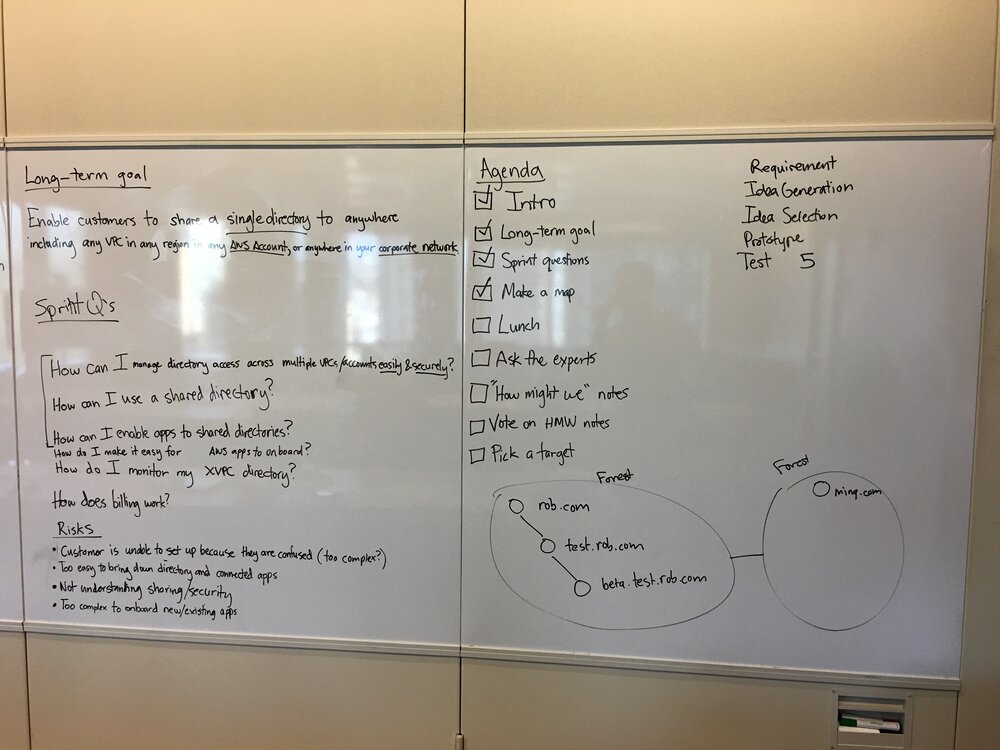 Long-term goal
Enable customers to share a single directory to anywhere
including any VPC in any region in any AWS Account, or anywhere in your corporate network.
Sprint Q's
How can I manage directory access across multiple VPCs/accounts easily & securely?
How can I use a shared directory?
How can I enable apps to shared directories?
How do I make it easy for AWS apps to onboard?
How do I monitor my XVPC directory?
How does billing work?
Risks
• Customer is unable to set up because they are confused (too complex?)
• Too easy to bring down directory and connected apps
• Not understanding sharing/security
• Too complex to onboard new/existing apps
Agenda
Intro
Long-term goal
Sprint questions
Make a map
Lunch
Ask the experts
"How might we" notes
Vote on HMW notes
Pick a target
Requirement
Idea Generation
Idea Selection
Prototype
Test 5
Forest
rob.com
test.rob.com
beta.test.rob.com
Forest
ming.com